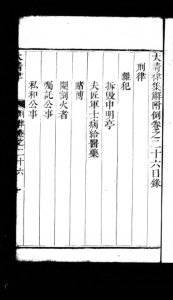 大清律集解附例卷之二十六目錄
刑律
雜犯
拆毀申明亭
夫匠軍士病給醫藥
賭博
閹割火者
囑託公事
私和公事
大清律
刑律卷之二十六